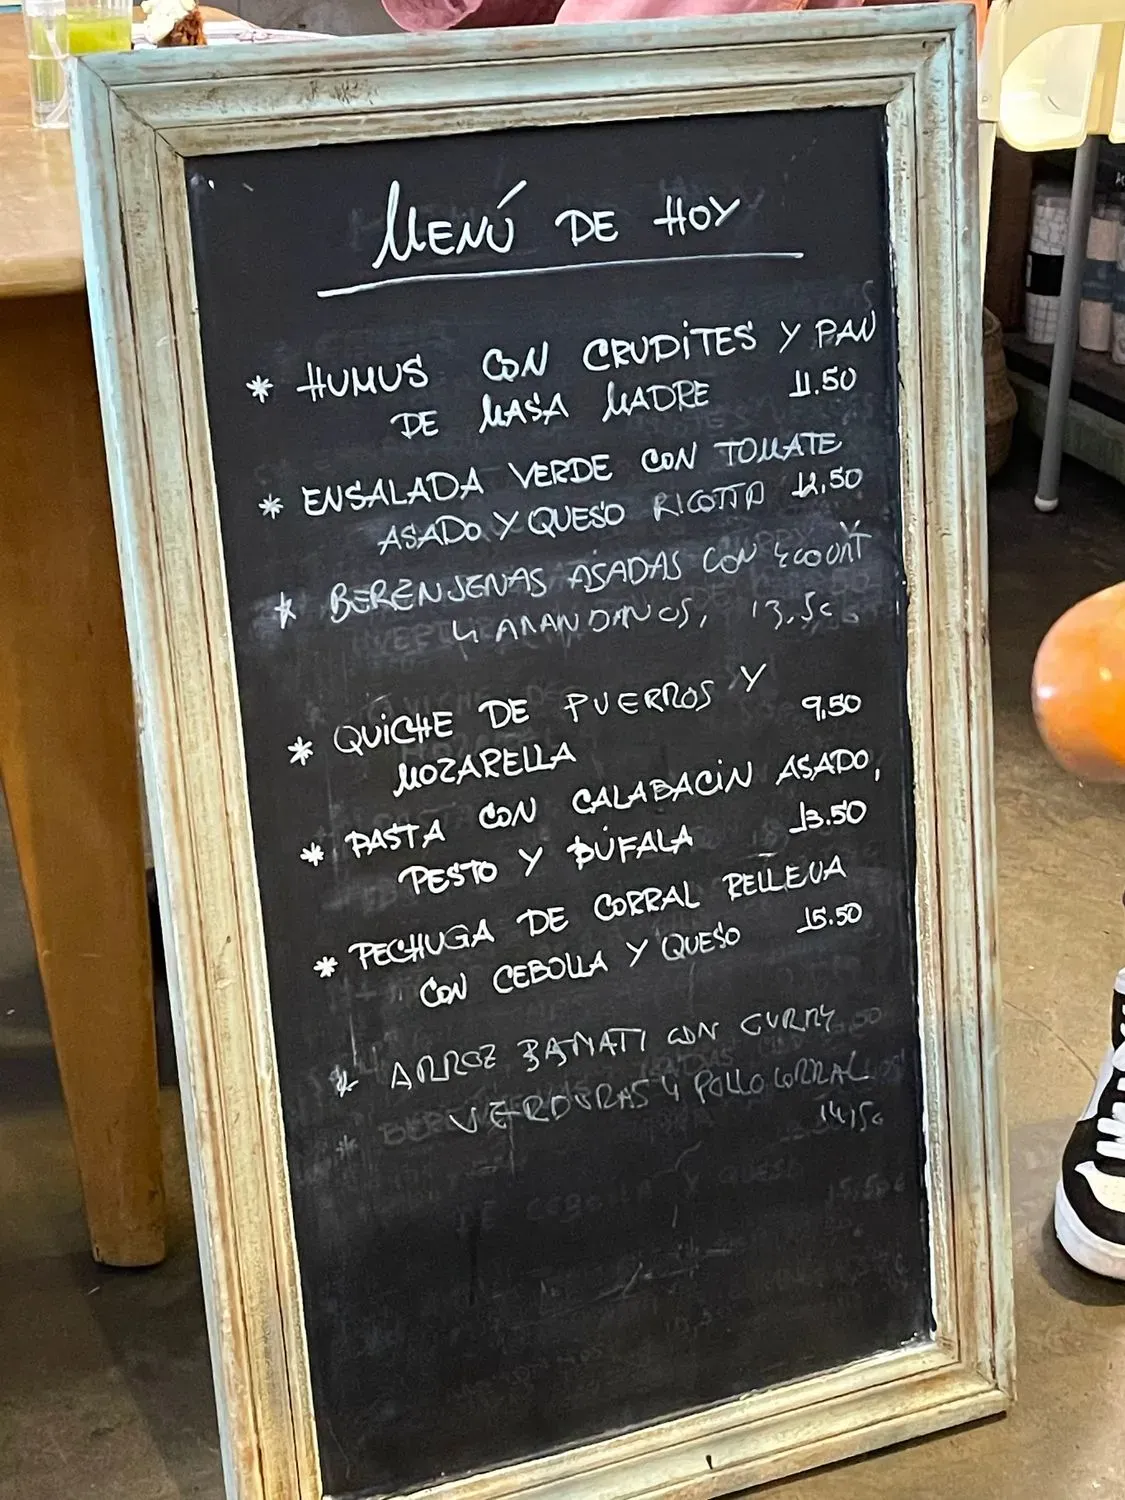 MENÚ DE HOY
* HUMUS CON CRUDITES Y PAN
DE MASA MADRE 11.50
* ENSALADA VERDE CON TOMATE
ASADO Y QUESO RICOTTA 12.50
* BERENJENAS ASADAS CON
Y ARANDANOS, 13.50
* QUICHE DE PUERROS Y
MOZARELLA 9,50
* PASTA CON CALABACIN ASADO,
PESTO Y BÚFALA 13.50
* PECHUGA DE CORRAL RELLENA
CON CEBOLLA Y QUESO 15.50
* ARROZ BAMATI CON CURRY
VERDURAS Y POLLO CORRAL
14,50